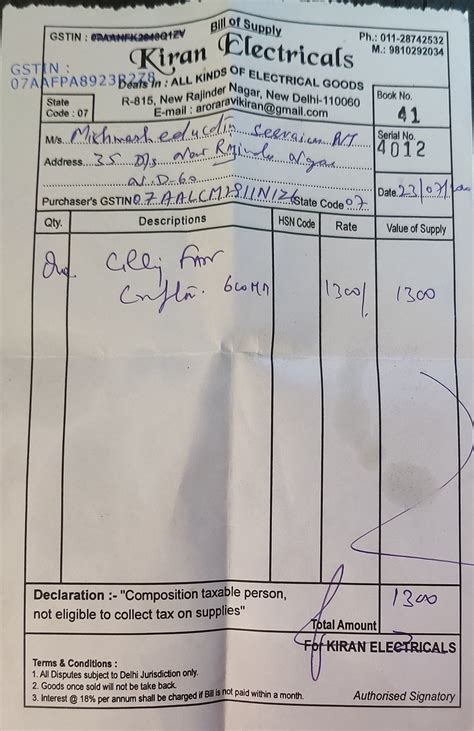 Bill of Supply
GSTIN : 07AANFK2648Q1ZV
Ph.: 011-28742532
M.: 9810292034
Kiran Electricals
GSTIN :
07AAFPA8923R2Z8
Deals in : ALL KINDS OF ELECTRICAL GOODS
R-815, New Rajinder Nagar, New Delhi-110060
E-mail : aroraravikiran@gmail.com
State
Code : 07
Book No.
41
M/s
Serial No.
4012
Address 35 New Nagar
N.D-60
Date 23/07/
Purchaser's GSTIN 07AALCM2811N1Z6 State Code 07
Qty. Descriptions HSN Code Rate Value of Supply
Fan
600MM 1300/ 1300
Declaration :- "Composition taxable person,
not eligible to collect tax on supplies"
1300
Total Amount
For KIRAN ELECTRICALS
Terms & Conditions :
1. All Disputes subject to Delhi Jurisdiction only.
2. Goods once sold will not be take back.
3. Interest @ 18% per annum shall be charged if Bill is not paid within a month.
Authorised Signatory